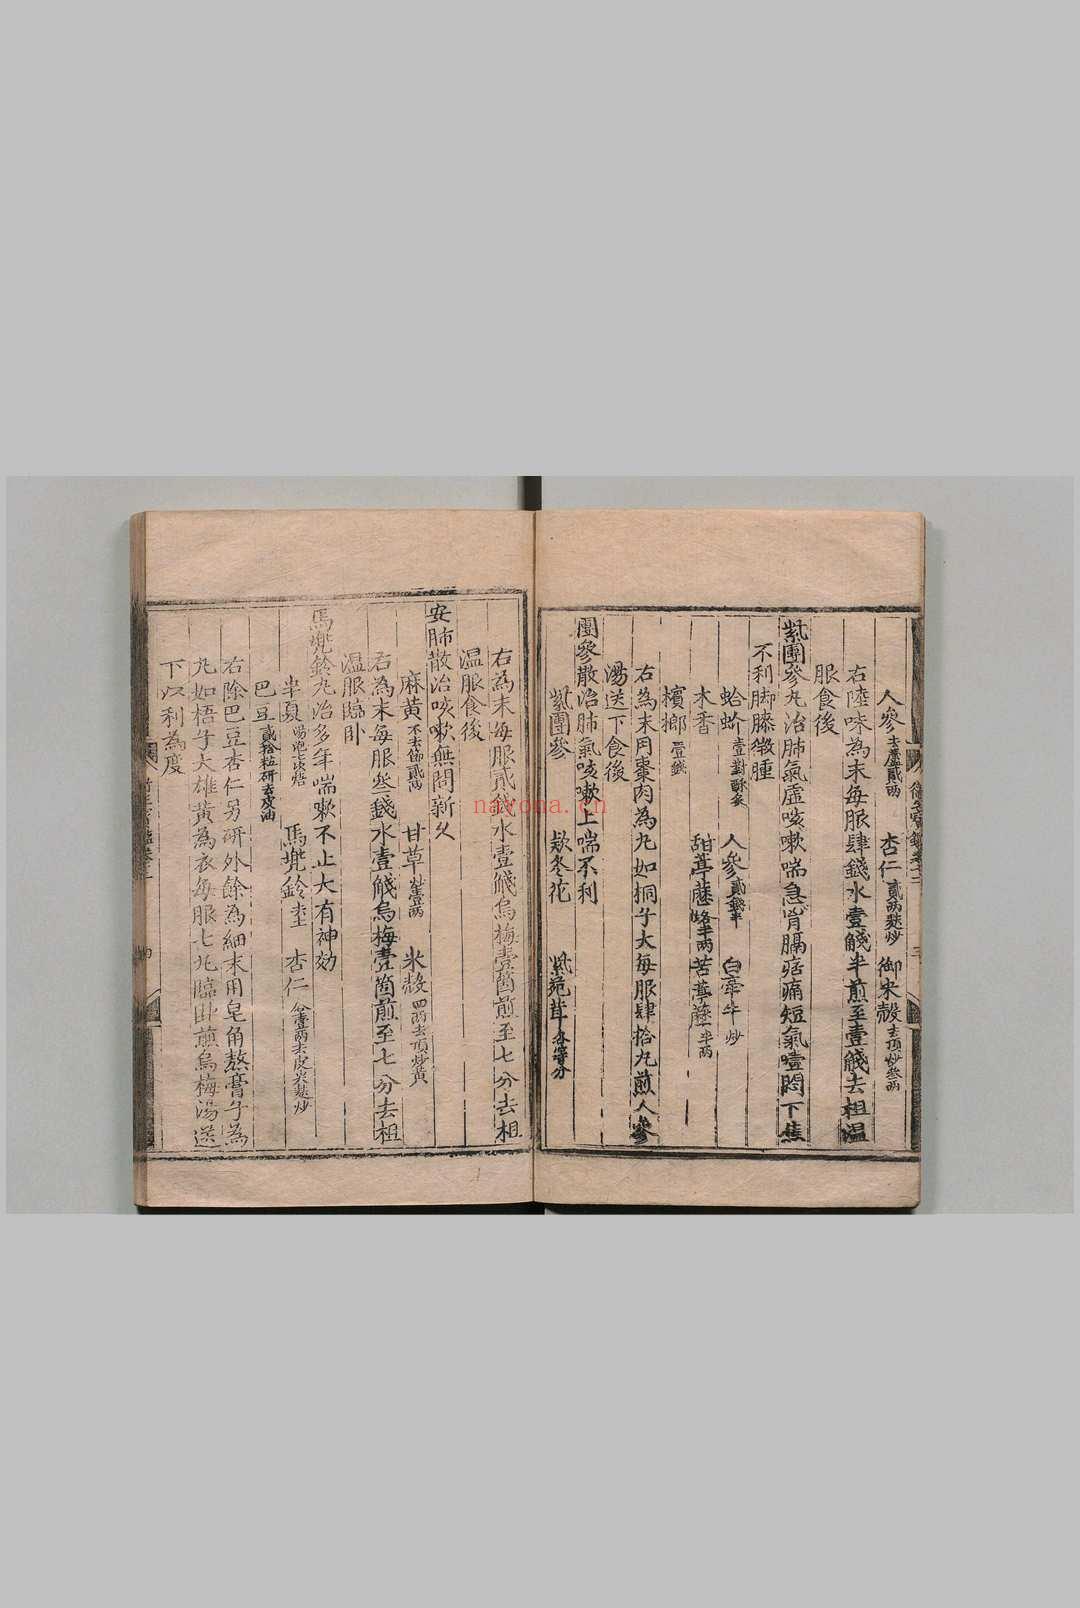 人參去蘆貳兩 杏仁貳兩麩炒 御米殼去頂炒叁兩
右陸味為末每服肆錢水壹觥半煎至壹觥去柤温
服食後
紫團參丸治肺氣虛咳嗽喘急胷膈痞痛短氣噎悶下焦
不利脚膝微腫
蛤蚧壹對酥炙 人參貳錢半 白牽牛炒
木香 甜葶藶焙半兩 苦葶藶半兩
檳榔壹錢
右為末用棗肉為丸如桐子大每服肆拾丸煎人參
湯送下食後
團參散治肺氣咳嗽上喘不利
紫團參 欵冬花 紫菀茸各等分
衛生寶鑑卷十二
右為末每服貳錢水壹觥烏梅壹箇煎至七分去柤
温服食後
安肺散治咳嗽無問新久
麻黄不去節貳兩 甘草炒壹兩 米殼四兩去頂炒黄
右為末每服叁錢水壹觥烏梅壹箇煎至七分去柤
温服臨卧
馬兜鈴丸治多年喘嗽不止大有神効
半夏湯泡七次焙 馬兜鈴去土 杏仁各壹兩去皮尖麩炒
巴豆貳拾粒研去皮油
右除巴豆杏仁另研外餘為細末用皂角熬膏子為
丸如梧子大雄黄為衣每服七丸臨卧煎烏梅湯送
下以利為度
nayona.cn